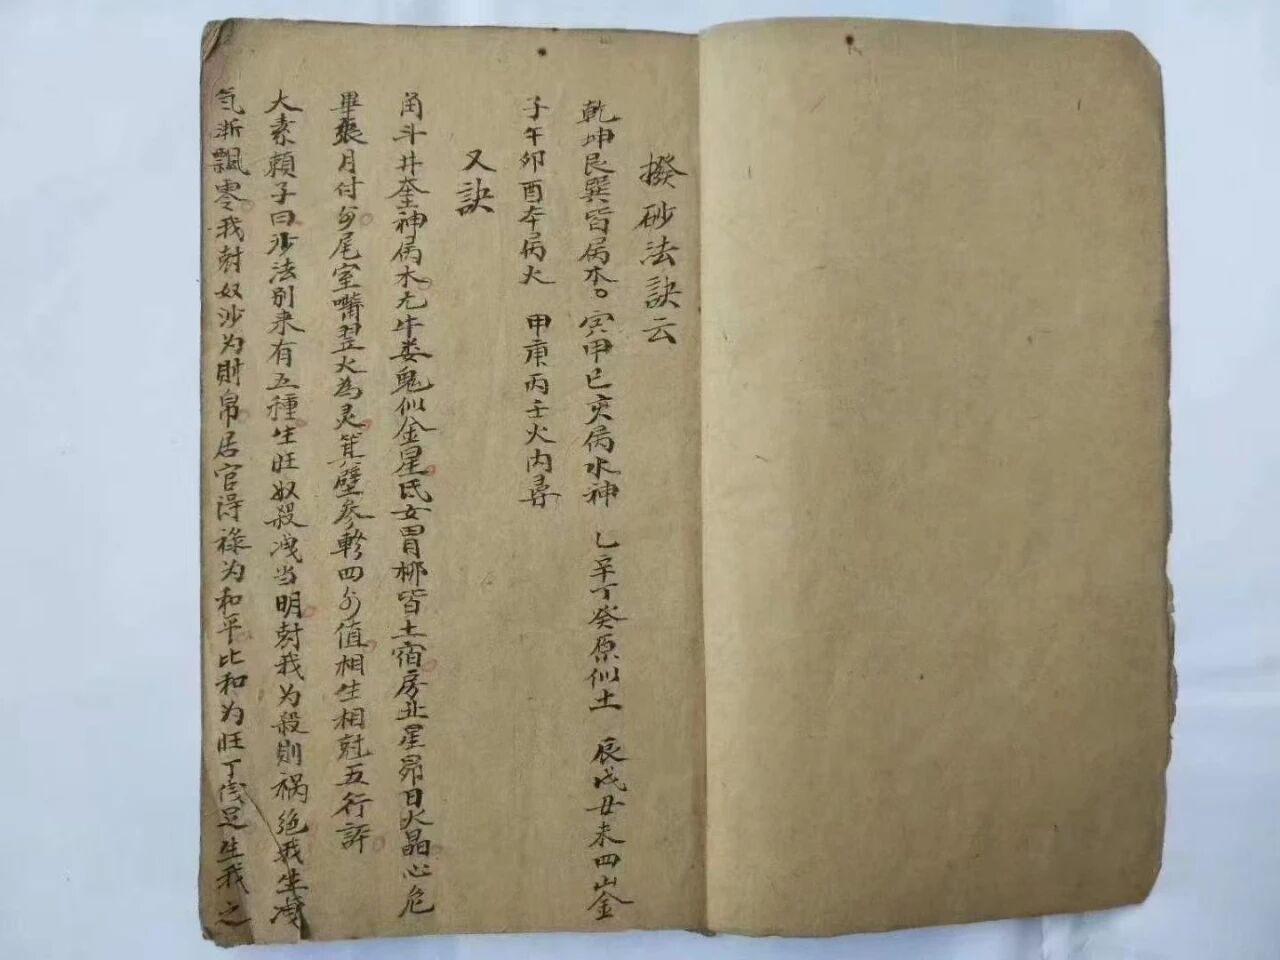 撥砂法訣云
乾坤艮巽皆属木。寅甲巳亥属水神　乙辛丁癸原似土　辰戌丑未四山金
子午卯酉本属火　甲庚丙壬火内尋
又訣
角斗井奎神属木亢牛娄鬼似金星氐女胃柳皆土宿房虚星昴日火晶心危
畢張月付尾室嘴翌火為灵箕壁参軫四值相生相尅五行評
大素賴子曰沙法别来有五種生旺奴殺洩当明尅我为殺則禍绝我生洩
氣渐飄零我尅奴沙为財帛居官得祿为和平比和为旺丁足生我之